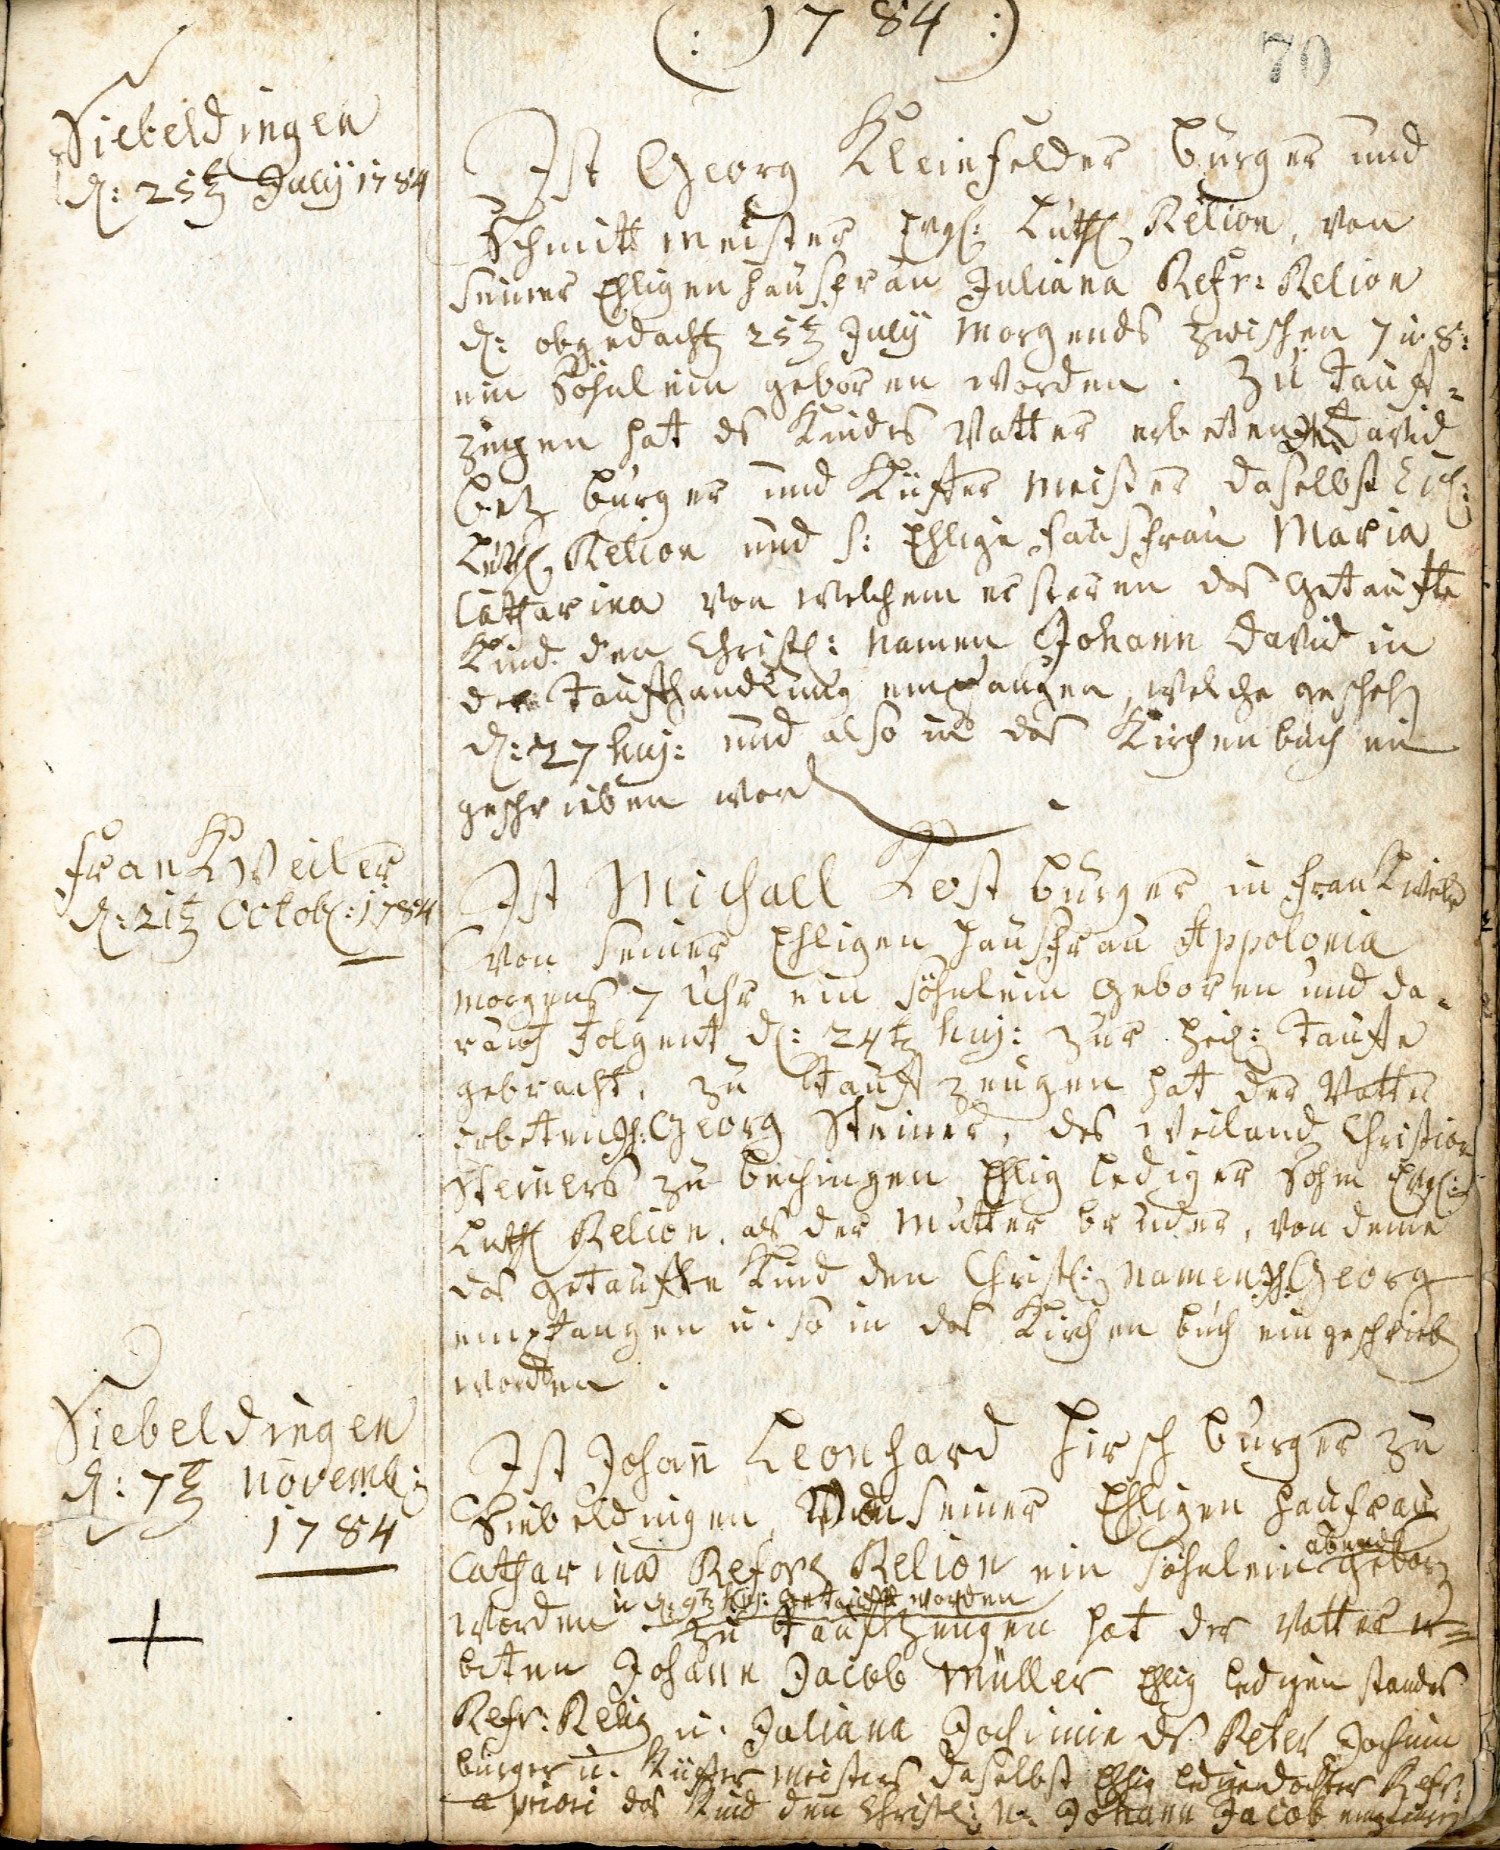 (: 1784 :)
70
Siebeldingen
d: 25t July 1784
Ist Georg Kleinfelder burger und
Schmitt meister Evgl: Luth Relion, von
seiner Ehligen hausfrau Juliana Refr: Relion
d: obgedacht 25t July morgends zwischen 7 u 8:
ein Söhnlein geboren worden. Zu Tauf=
zeugen hat ds Kindes Vatter erbeten David
betz burger und Küffer meister daselbst
Luth Relion und s: Ehlige hausfrau Maria
Catharina von welchem ersteren das getaufte
Kind den Christl: Namen Johann David in
der Taufhandlung empfangen, welche gescheh
d: 27 huj: und also in das Kirchenbuch ein
geschrieben word
Frankweiler
d: 21t Octob: 1784
Ist Michael Kost burger in Frankweiler
von seiner Ehligen hausfrau Appolonia
morgens 7 Uhr ein söhnlein geboren und da=
rauf folgent d: 24t huj: zur heil: Taufe
gebracht. zu Tauf zeugen hat der Vatter
erbeten Georg Steiner, des weiland Christian
Steiners zu bechingen Ehlig lediger Sohn Evgl:
Luth Relion. als der Mutter bruder, von deme
das getaufte Kind den Christl: Namen Georg
empfangen u. so in das Kirchen buch eingeschrieb
worden.
Siebeldingen
d: 7t novemb:
1784
Ist Johan Leonhard Hirsch burger zu
Siebeldingen, Von seiner Ehligen hausfrau
Catharina Reform Relion ein söhnlein abends gebor
worden u d: 9t huj: getauft worden
zu Taufzeugen hat der Vatter er=
beten Johann Jacob Müller Ehlig ledigen standes
Refr: Relig u. Juliana Jochimin ds Peter Jochim
burger u. Küffer meisters daselbst Ehlig ledigendochter Refr:
a priori das Kind den Christl: N: Johann Jacob empfangen